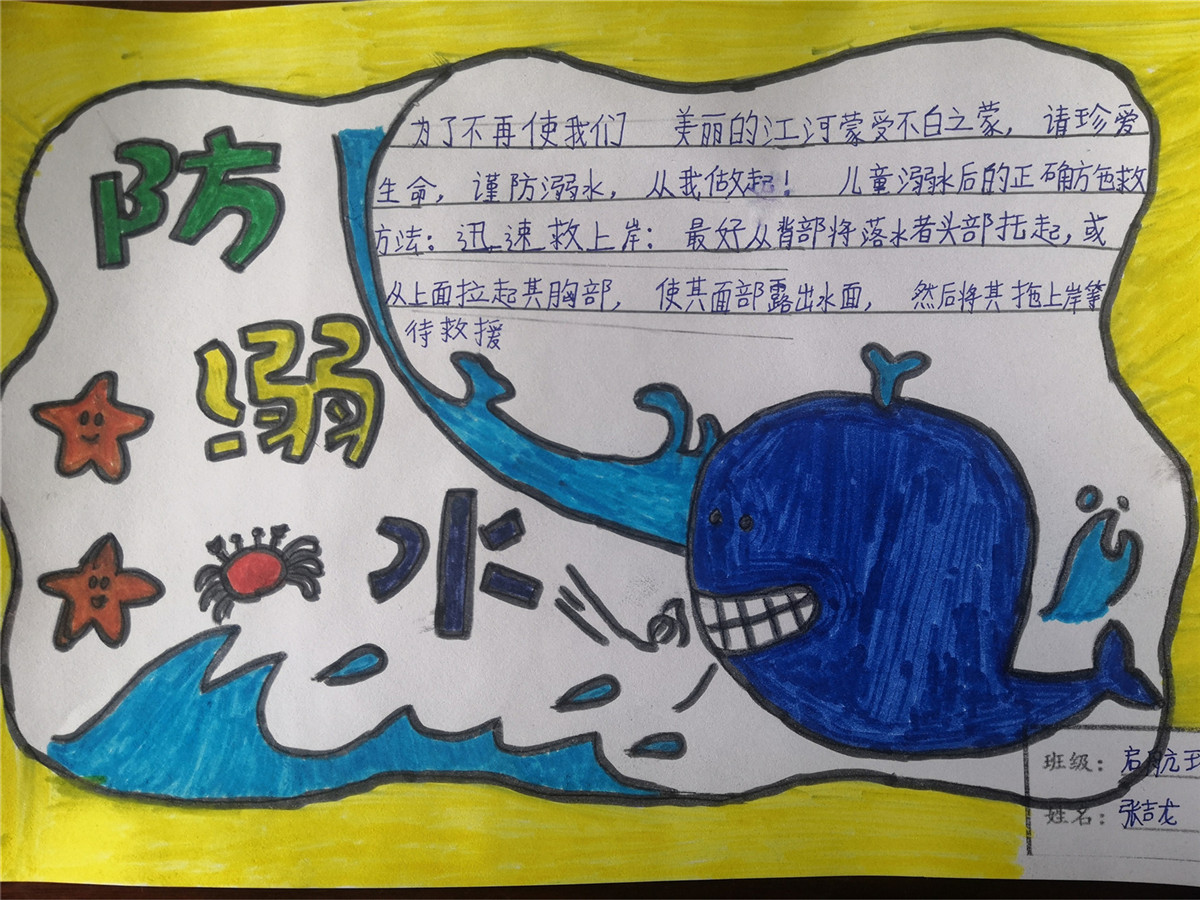 防
溺
水
为了不再使我们 美丽的江河蒙受不白之蒙，请珍爱
生命，谨防溺水，从我做起！ 儿童溺水后的正确方救
方法：迅速救上岸：最好从背部将落水者头部托起，或
从上面拉起其胸部， 使其面部露出水面， 然后将其拖上岸等
待救援
班级：启航
姓名：张吉龙